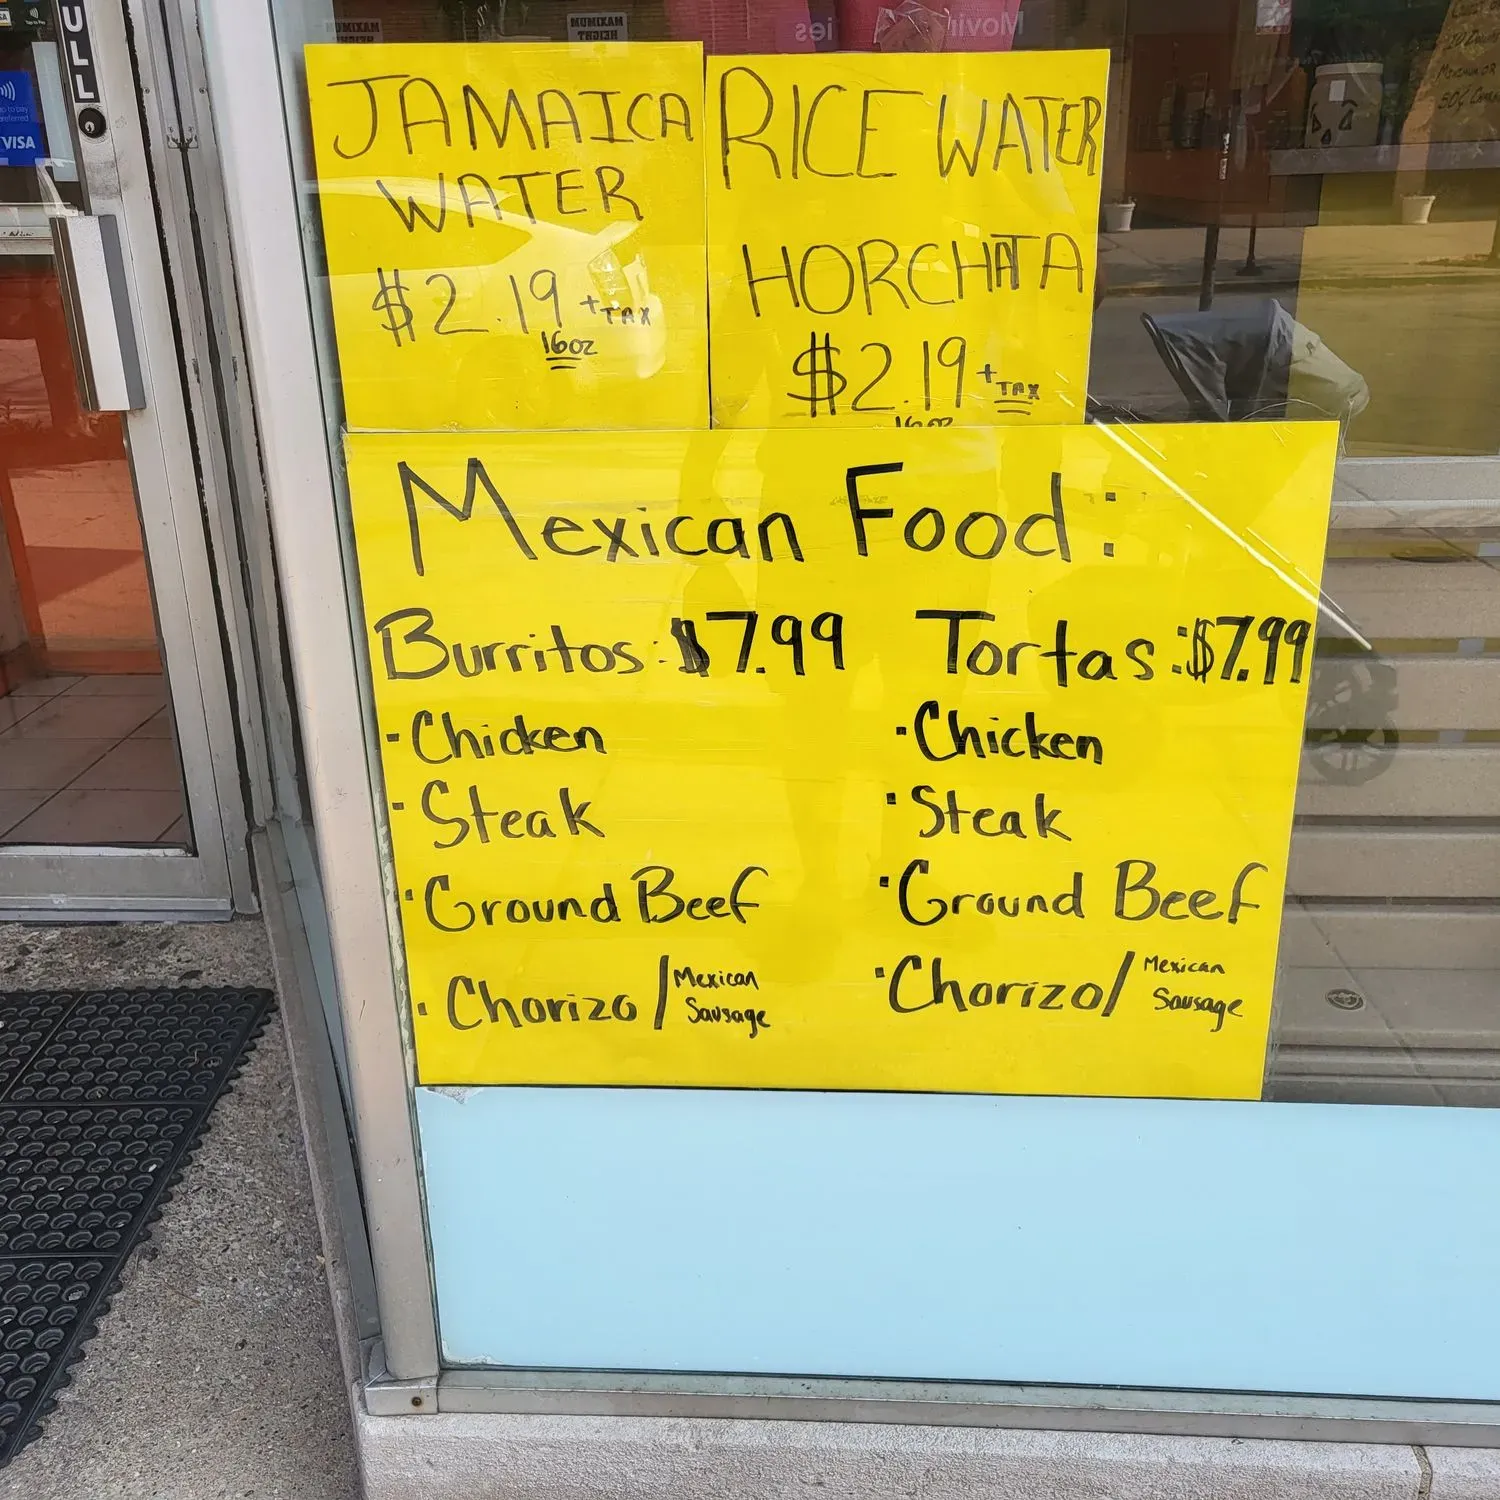 PULL
VISA
MAXIMUM
HEIGHT
MAXIMUM
HEIGHT
Movin
JAMAICA
WATER
$2.19 + TAX
16oz
RICE WATER
HORCHATA
$2.19 + TAX
16oz
Mexican Food:
Burritos: $7.99
· Chicken
· Steak
· Ground Beef
· Chorizo / Mexican
Sausage
Tortas: $7.99
· Chicken
· Steak
· Ground Beef
· Chorizo / Mexican
Sausage